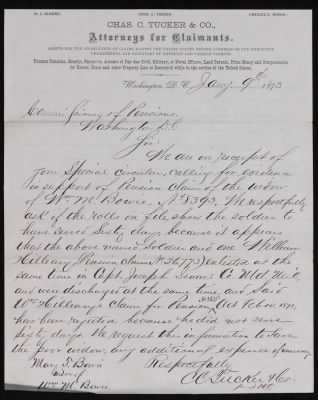 CHAS. C. TUCKER & CO.,
Attorneys for Claimants.
AGENTS FOR THE PROSECUTION OF CLAIMS AGAINST THE UNITED STATES BEFORE CONGRESS OR THE EXECUTIVE
DEPARTMENTS, AND SOLICITORS OF AMERICAN AND FOREIGN PATENTS.
Procure Pensions, Bounty, Back-Pay, Arrears of Pay due Civil, Military, or Naval Officers, Land Patents, Prize Money and Compensation
for Horses, Boats and other Property Lost or Destroyed while in the service of the United States.
Washington, D. C. Jany 9th 1873
of Pensions,
Washington D.C.
Sir:
We are in receipt of
your Special circular, calling for evidence
in support of Pension claim of the widow
of Wm. M. Bowie, No. 5393. We respectfully
ask if the rolls on file show the soldier to
have served sixty days, because it appears
that the above named soldier and one William
Hilleary (Pension claim No. 26,773) enlisted at the
same time in Capt Joseph Isaacs Co. Md. Mil.
and were discharged at the same time, and said
Wm Hilleary's Claim for Pension, Act Feb. 14, 1871,
has been rejected because he did not serve
sixty days. We request this information to save
the poor widow any additional expense if unnecessary.
Mary T. Bowie
widow of
Wm M. Bowie
Respectfully
C C Tucker & Co.